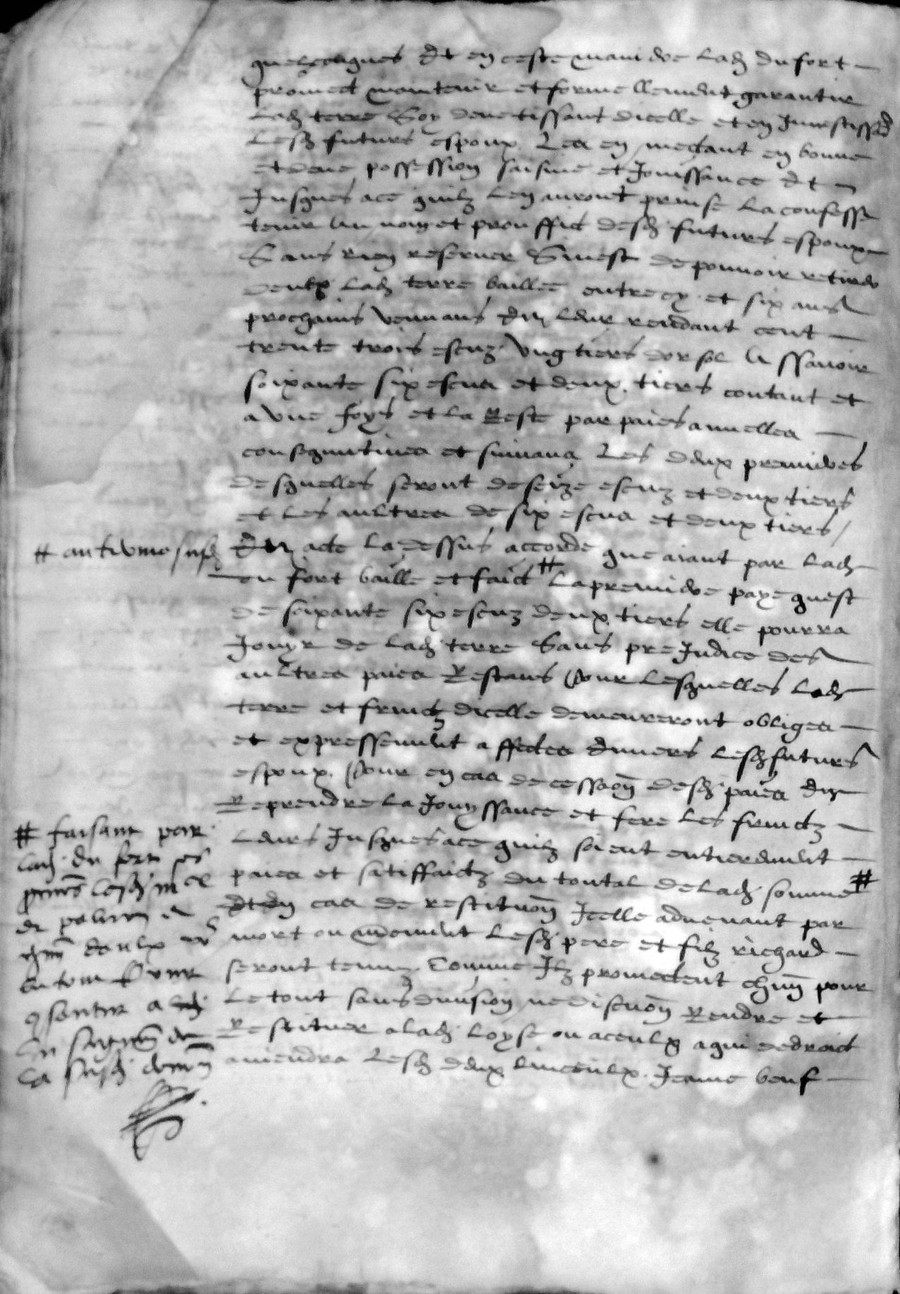 quelconques Et en ceste maniere lad du fort
promect maintenir et formellement garantir
lad terre Soy devetissant dicelle et en Investissant
lesd futurs espoux Les en mectant en bonne
et deue possession saisine et Jouissance Et
Jusques ace quilz len auront prinse la confesse
tenir au nom et prouffit desd futurs espoux
Sans rien reserver Sinest de pouvoir retirer
deulx lad terre baillee entre cy et six ans
prochains venans En leur rendant cent
trente trois escuz ung tiers dor sol A ssavoir
soixante six escus et deux tiers contant et
a une foys et la Reste par paies annuelles
consequutives et suivans Les deux premieres
desquelles seront de seize escuz et deux tiers
et les aultres de six escus et deux tiers
# au terme susd
Et a este la dessus accorde que aiant par lad
du fort baille et faict # la premiere paye quest
de soixante six escuz deux tiers elle pourra
Jouyr de lad terre Sans preJudice des
aultres paies Restans Pour lesquelles lad
terre et fruictz dicelle demeureront obliges
et expressement affectes envers lesd futurs
espoux Pour en cas de cession desd paies En
Reprendre la Jouyssance et fere les fruictz
leurs Jusques ace quilz soient entierement
paies et satiffaictz du toutal de lad somme #
# faisant par
lad du fort
cas de restitution Icelle advenant par
mort ou aultrement lesd pere et filz richard
seront tenuz Comme Ilz promectent chun pour
le tout sans division ne discution Rendre et
Restituer a lad Loyse ou a ceulx a qui de droict
aviendra lesd deux linceulx Jeanne beuf
la susd